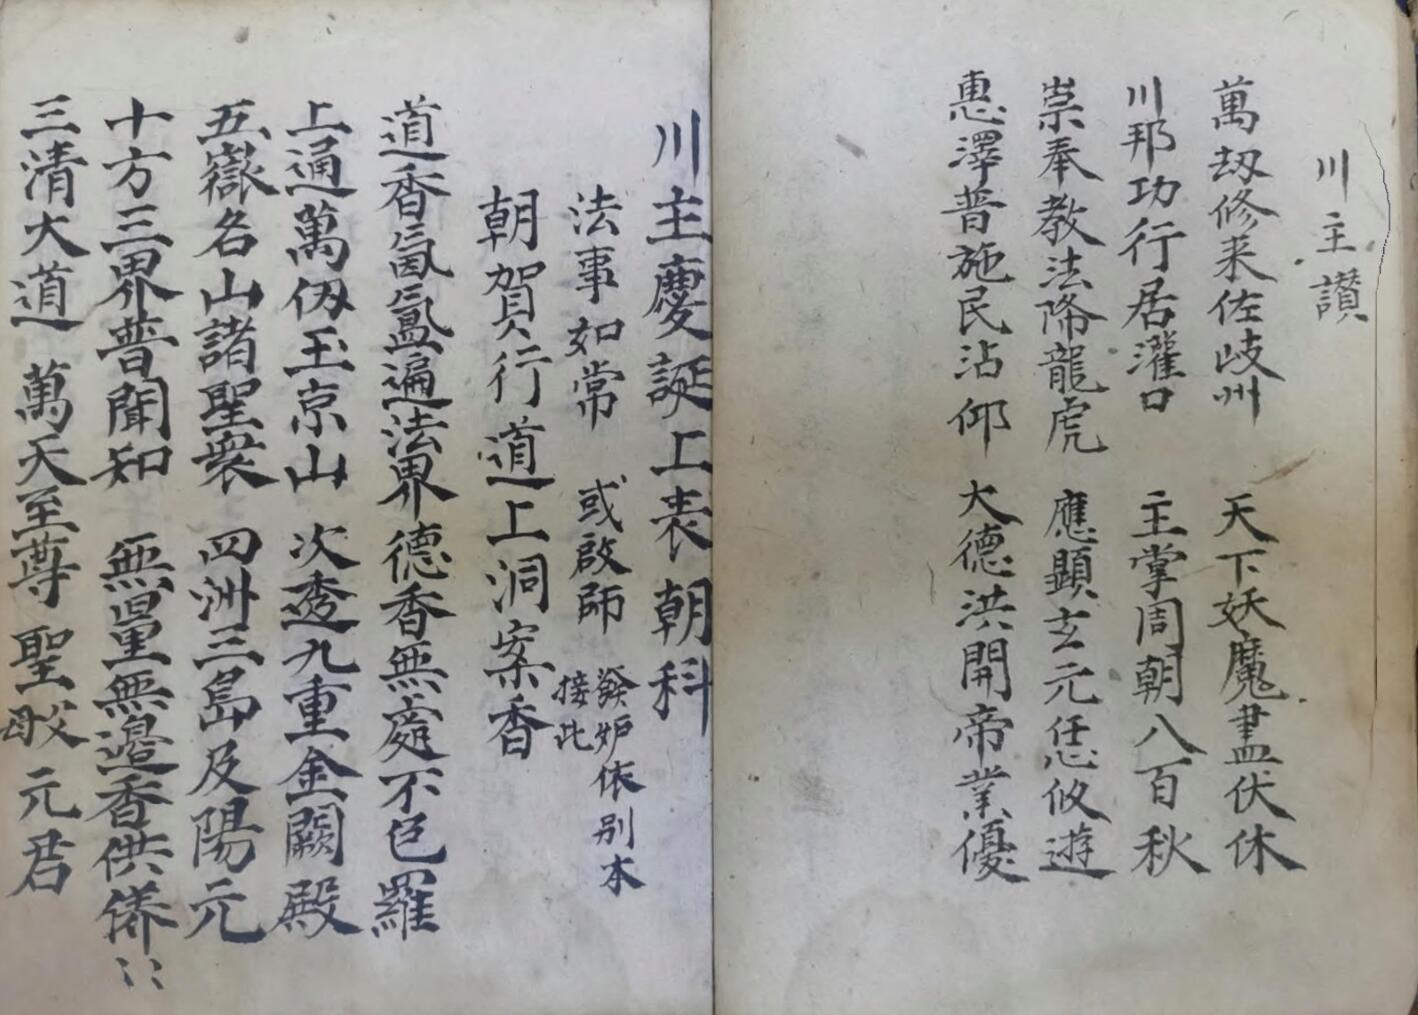 川主讃
萬刼修来佐岐州 天下妖魔盡伏休
川邦功行居灌口 主掌周朝八百秋
崇奉教法降龍虎 應顯玄元任悠遊
惠澤普施民沾仰 大德洪開帝業優
川主慶誕上表朝科
法事如常 或啟師 發炉依别本接此
朝賀行道上洞案香
道香氤氳遍法界德香無處不包羅
上通萬仭玉京山 次透九重金闕殿
五嶽名山諸聖衆 四洲三島及陽元
十方三界普聞知 無量無邊香供養〻
三清大道 萬天至尊 聖 元君